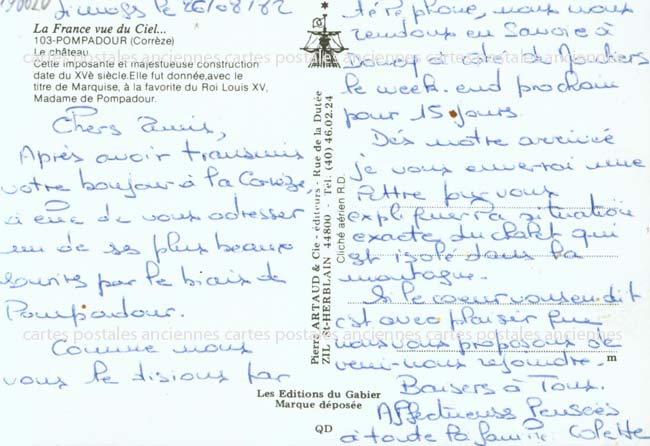 Limoges le 26/08/82
La France vue du Ciel...
103-POMPADOUR (Corrèze)
Le château
Cette imposante et majestueuse construction
date du XVè siècle.Elle fut donnée,avec le
titre de Marquise, à la favorite du Roi Louis XV,
Madame de Pompadour.
Chers Amis,
Après avoir transmis
votre bonjour à la Corrèze,
à elle de vous adresser
un de ses plus beaux
sourires par le biais de
Pompadour.
Comme nous
vous le disions par
Pierre ARTAUD & Cie - éditeurs - Rue de la Dutée
ZIL St-HERBLAIN 44800 - Tél. (40) 46.02.24
Cliché aérien R.D.
Les Editions du Gabier
Marque déposée
QD
téléphone, nous nous
rendons en Savoie à
côté de
le week-end prochain
pour 15 jours.
Dès notre arrivée
je vous enverrai une
lettre pour vous
expliquer la situation
exacte du chalet qui
est isolé dans la
montagne.
Si le coeur vous en dit
c'est avec plaisir que
nous vous proposons de
venir nous rejoindre.
m
Baisers à Tous.
Affectueuses Pensées
à toute la famille. Colette
cartes postales anciennes cartes postales anciennes cartes postales anciennes
cartes postales anciennes cartes postales anciennes cartes postales anciennes